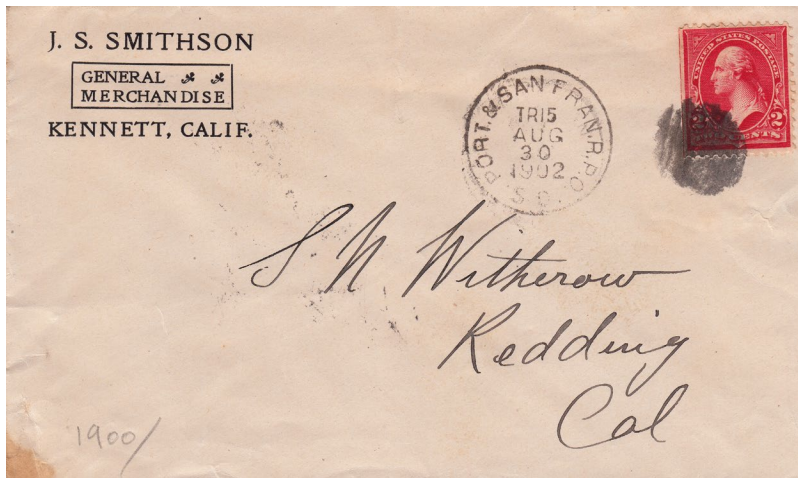 J. S. SMITHSON
GENERAL
MERCHANDISE
KENNETT, CALIF.
PORT. & SAN FRAN. R.P.O.
TR15
AUG
30
1902
S.D.
UNITED STATES POSTAGE
2 2
CENTS
S N Witherow
Redding
Cal
1900/